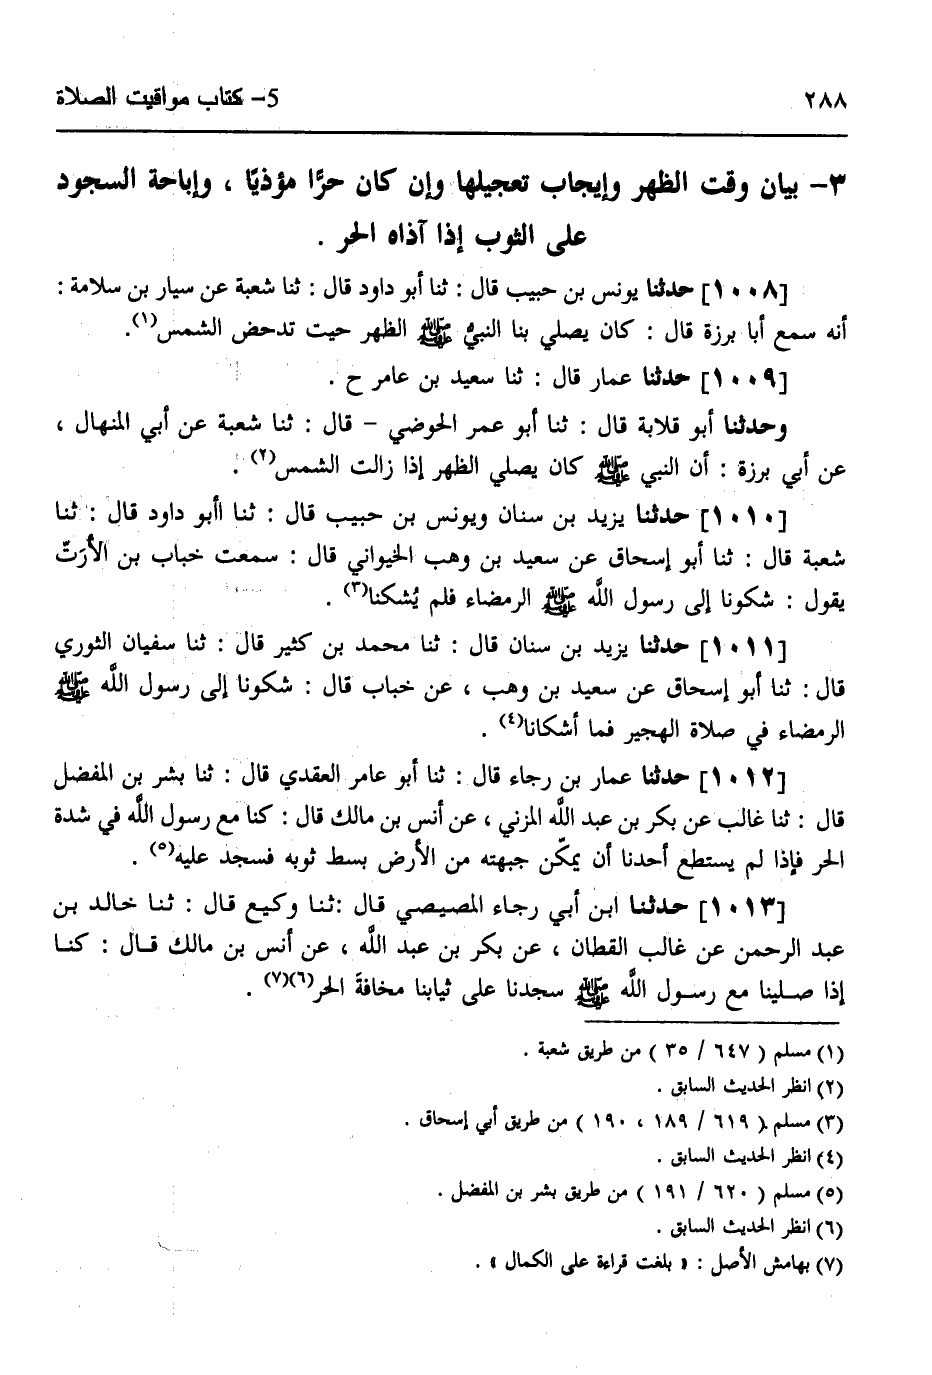 ٢٨٨
5- كتاب مواقيت الصلاة
٣- بيان وقت الظهر وإيجاب تعجيلها وإن كان حرًّا مؤذيًا ، وإباحة السجود
على الثوب إذا آذاه الحر .
[١٠٠٨] حدثنا يونس بن حبيب قال : ثنا أبو داود قال : ثنا شعبة عن سيار بن سلامة :
أنه سمع أبا برزة قال : كان يصلي بنا النبيُّ ﷺ الظهر حيت تدحض الشمس(١).
[١٠٠٩] حدثنا عمار قال : ثنا سعيد بن عامر ح .
وحدثنا أبو قلابة قال : ثنا أبو عمر الحوضي – قال : ثنا شعبة عن أبي المنهال ،
عن أبي برزة : أن النبي ﷺ كان يصلي الظهر إذا زالت الشمس(٢) .
[١٠١٠] حدثنا يزيد بن سنان ويونس بن حبيب قال : ثنا اأبو داود قال : ثنا
شعبة قال : ثنا أبو إسحاق عن سعيد بن وهب الخيواني قال : سمعت خباب بن الأَرَتّ
يقول : شكونا إلى رسول اللَّه ﷺ الرمضاء فلم يُشكنا(٣) .
[١٠١١] حدثنا يزيد بن سنان قال : ثنا محمد بن كثير قال : ثنا سفيان الثوري
قال : ثنا أبو إسحاق عن سعيد بن وهب ، عن خباب قال : شكونا إلى رسول اللَّه ﷺ
الرمضاء في صلاة الهجير فما أشكانا(٤) .
[١٠١٢] حدثنا عمار بن رجاء قال : ثنا أبو عامر العقدي قال : ثنا بشر بن المفضل
قال : ثنا غالب عن بكر بن عبد اللَّه المزني ، عن أنس بن مالك قال : كنا مع رسول اللَّه في شدة
الحر فإذا لم يستطع أحدنا أن يمكّن جبهته من الأرض بسط ثوبه فسجد عليه(٥) .
[١٠١٣] حدثنا ابن أبي رجاء المصيصي قال :ثنا وكيع قال : ثنا خالد بن
عبد الرحمن عن غالب القطان ، عن بكر بن عبد اللَّه ، عن أنس بن مالك قال : كنا
إذا صلينا مع رسول اللَّه ﷺ سجدنا على ثيابنا مخافةَ الحر(٦)(٧) .
(١) مسلم ( ٦٤٧ / ٣٥ ) من طريق شعبة .
(٢) انظر الحديث السابق .
(٣) مسلم ( ٦١٩ / ١٨٩ ، ١٩٠ ) من طريق أبي إسحاق .
(٤) انظر الحديث السابق .
(٥) مسلم ( ٦٢٠ / ١٩١ ) من طريق بشر بن المفضل .
(٦) انظر الحديث السابق .
(٧) بهامش الأصل : « بلغت قراءة على الكمال » .